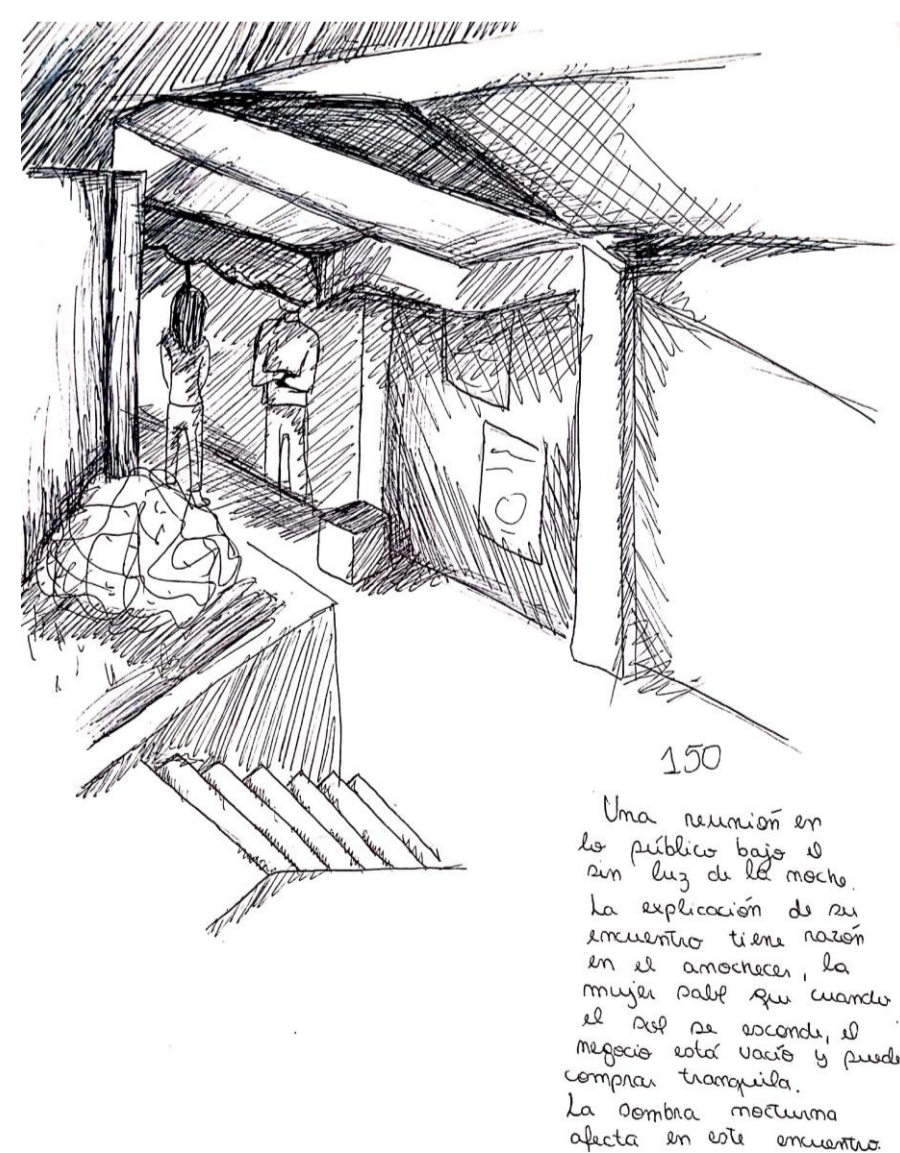 150
Una reunión en
lo público bajo el
sin luz de la noche.
La explicación de su
encuentro tiene razón
en el anochecer, la
mujer sabe que cuando
el sol se esconde, el
negocio está vacío y puede
comprar tranquila.
La sombra nocturna
afecta en este encuentro.